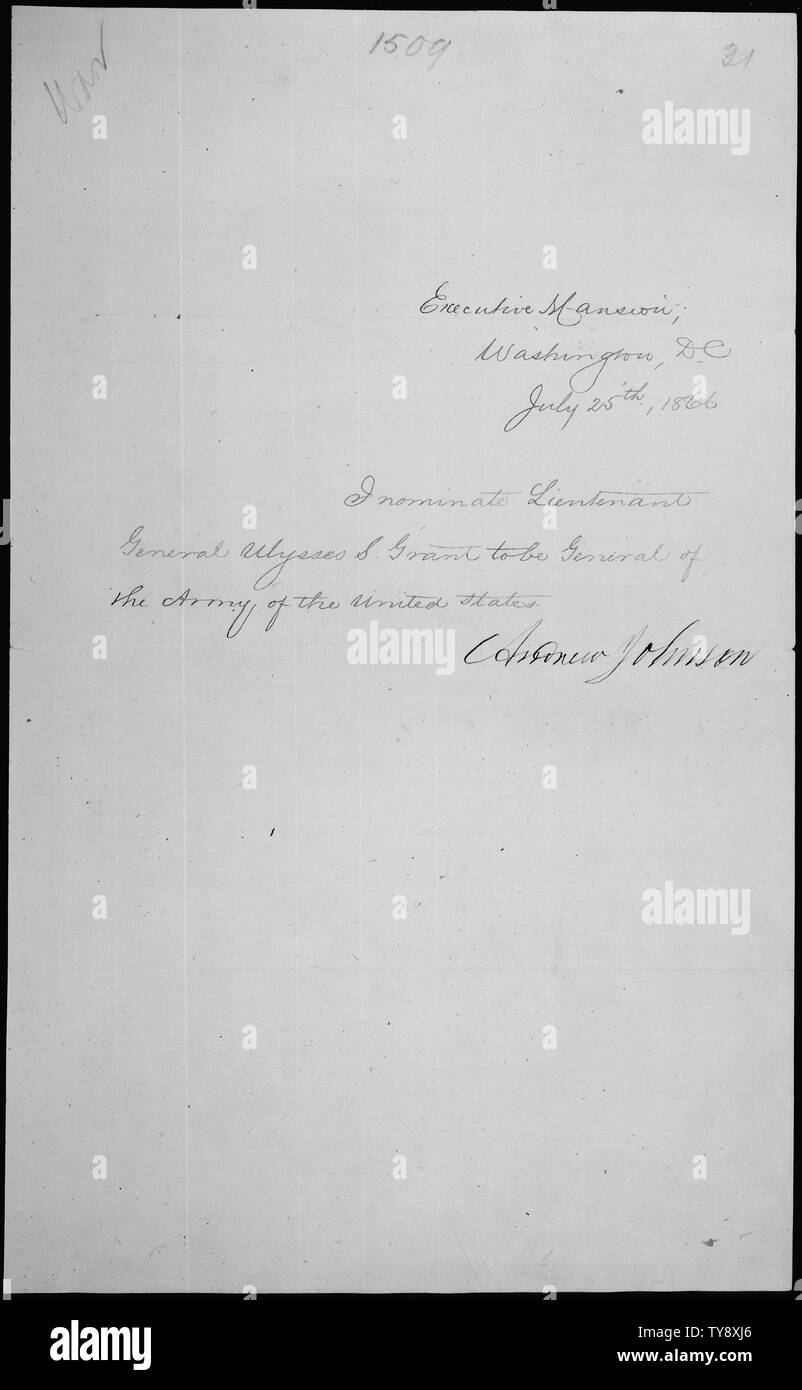 1509
31
Executive Mansion,
Washington, D.C.
July 25th, 1866.
I nominate Lieutenant
General Ulysses S. Grant to be General of
the Army of the United States.
Andrew Johnson
alamy
alamy
alamy
a
alamy
Image ID: TY8XJ6
www.alamy.com